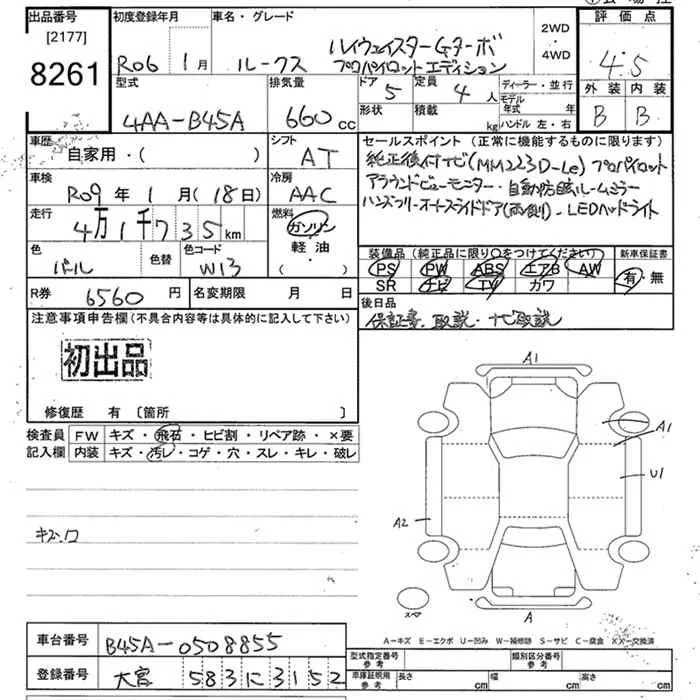 出品番号 初度登録年月 車名・グレード 評価点
[2177]
8261
R06 1月 ルークス ハイウェイスターGターボ
プロパイロットエディション
2WD
4WD
4.5
型式 排気量 ドア 5 定員 4人 ディーラー・並行 外装 内装
4AA-B45A 660cc 形状 積載 kg モデル年式 年 B B
ハンドル 左・右
車歴 シフト セールスポイント (正常に機能するものに限ります)
自家用・( ) AT 純正後付ナビ(MM223D-Le) プロパイロット
車検 冷房 アラウンドビューモニター・自動防眩ルームミラー
R09年 1月(18日) AAC ハンズフリーオートスライドドア(両側)・LEDヘッドライト
走行 燃料
4万1千735km ガソリン
軽油
( )
色 色替 色コード 装備品 (純正品に限り○をつけてください) 新車保証書
パール W13 PS PW ABS エアB AW 有・無
SR ナビ TV カワ
R券 6560円 名変期限 月 日 後日品
保証書、取説・ナビ取説
注意事項申告欄(不具合内容等は具体的に記入して下さい)
初出品
修復歴 有 〔箇所 〕
検査員 FW キズ・飛石・ヒビ割・リペア跡・×要
記入欄 内装 キズ・汚レ・コゲ・穴・スレ・キレ・破レ
A1
A1
U1
A2
A
スペア
A-キズ E-エクボ U-凹み W-補修跡 S-サビ C-腐食 XX-交換済
車台番号 B45A-0508855
登録番号 大宮 583 に 3152
型式指定番号 参考 類別区分番号 参考
車庫証明用 参考 長さ cm 幅 cm 高さ cm